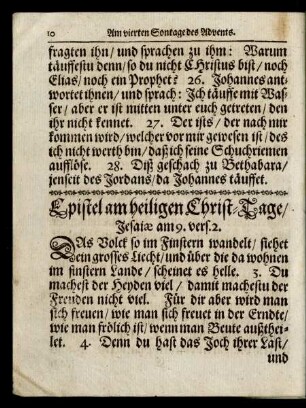 10 Am vierten Sontage des Advents.
fragten ihn/ und sprachen zu ihm: Warum
täuffestu denn/ so du nicht Christus bist/ noch
Elias/ noch ein Prophet? 26. Johannes ant-
wortet ihnen/ und sprach: Ich täuffe mit Was-
ser/ aber er ist mitten unter euch getreten/ den
ihr nicht kennet. 27. Der ists/ der nach mir
kommen wird/ welcher vor mir gewesen ist/ des
ich nicht werth bin/ daß ich seine Schuchriemen
aufflöse. 28. Diß geschach zu Bethabara/
jenseit des Jordans/ da Johannes täuffet.
Epistel am heiligen Christ-Tage/
Jesaiæ am 9. vers. 2.
DAs Volck so im Finstern wandelt/ siehet
ein grosses Liecht/ und über die da wohnen
im finstern Lande/ scheinet es helle. 3. Du
machest der Heyden viel/ damit machestu der
Freuden nicht viel. Für dir aber wird man
sich freuen/ wie man sich freuet in der Erndte/
wie man frölich ist/ wenn man Beute außthei-
let. 4. Denn du hast das Joch ihrer Last/
und